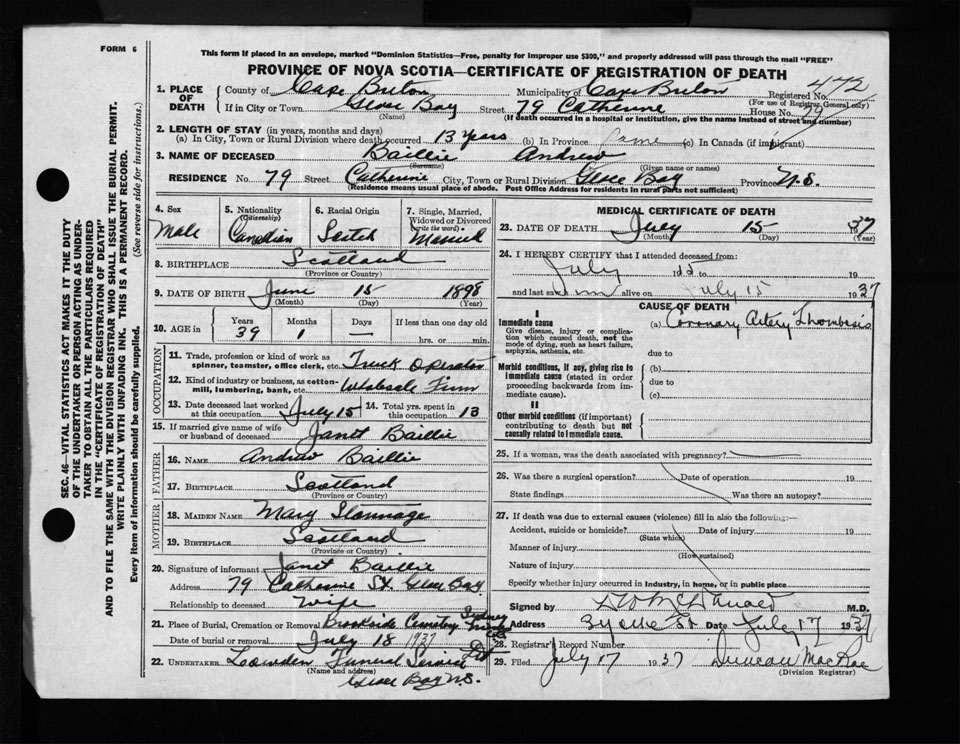 FORM 6
This form if placed in an envelope, marked "Dominion Statistics—Free, penalty for improper use $300," and properly addressed will pass through the mail "FREE"
PROVINCE OF NOVA SCOTIA—CERTIFICATE OF REGISTRATION OF DEATH
SEC. 46—VITAL STATISTICS ACT MAKES IT THE DUTY
OF THE UNDERTAKER OR PERSON ACTING AS UNDER-
TAKER TO OBTAIN ALL THE PARTICULARS REQUIRED
IN THE "CERTIFICATE OF REGISTRATION OF DEATH"
AND TO FILE THE SAME WITH THE DIVISION REGISTRAR WHO SHALL ISSUE THE BURIAL PERMIT.
WRITE PLAINLY WITH UNFADING INK. THIS IS A PERMANENT RECORD.
Every item of information should be carefully supplied. (See reverse side for instructions.)
1. PLACE OF DEATH
County of Cape Breton Municipality of Cape Breton Registered No. 472
(For use of Registrar General only)
If in City or Town Glace Bay Street 79 Catherine House No. 79
(Name) (If death occurred in a hospital or institution, give the name instead of street and number)
2. LENGTH OF STAY (in years, months and days)
(a) In City, Town or Rural Division where death occurred 13 years (b) In Province Same (c) In Canada (if immigrant)
3. NAME OF DECEASED Baillie Andrew
(Surname) (Given name or names)
RESIDENCE No. 79 Street Catherine City, Town or Rural Division Glace Bay Province N.S.
(Residence means usual place of abode. Post Office Address for residents in rural parts not sufficient)
4. Sex
Male
5. Nationality (Citizenship)
Canadian
6. Racial Origin
Scotch
7. Single, Married, Widowed or Divorced (write the word)
Married
8. BIRTHPLACE Scotland
(Province or Country)
9. DATE OF BIRTH June 15 1898
(Month) (Day) (Year)
10. AGE in Years Months Days If less than one day old
39 1 — hrs. or min.
OCCUPATION
11. Trade, profession or kind of work as spinner, teamster, office clerk, etc. Truck Operator
12. Kind of industry or business, as cotton-mill, lumbering, bank, etc. Wholesale Firm
13. Date deceased last worked at this occupation July 15 14. Total yrs. spent in this occupation 13
15. If married give name of wife or husband of deceased Janet Baillie
FATHER
16. NAME Andrew Baillie
17. BIRTHPLACE Scotland
(Province or Country)
MOTHER
18. MAIDEN NAME Mary
19. BIRTHPLACE Scotland
(Province or Country)
20. Signature of informant Janet Baillie
Address 79 Catherine St. Glace Bay
Relationship to deceased Wife
21. Place of Burial, Cremation or Removal Brookside Cemetery Sydney Mines
Date of burial or removal July 18 1937
22. UNDERTAKER Lowden Funeral Service Ltd
(Name and address)
Glace Bay N.S.
MEDICAL CERTIFICATE OF DEATH
23. DATE OF DEATH July 15 37
(Month) (Day) (Year)
24. I HEREBY CERTIFY that I attended deceased from:
July 15 to 19
and last saw him alive on July 15 1937
CAUSE OF DEATH
I
Immediate cause (a) Coronary Artery Thombrosis
Give disease, injury or complication which caused death, not the mode of dying, such as heart failure, asphyxia, asthenia, etc.
due to
Morbid conditions, if any, giving rise to immediate cause (stated in order proceeding backwards from immediate cause) (b)
due to
(c)
II
Other morbid conditions (if important) contributing to death but not causally related to immediate cause.
25. If a woman, was the death associated with pregnancy?
26. Was there a surgical operation? Date of operation 19
State findings Was there an autopsy?
27. If death was due to external causes (violence) fill in also the following:—
Accident, suicide or homicide? Date of injury 19
(State which)
Manner of injury
(How sustained)
Nature of injury
Specify whether injury occurred in industry, in home, or in public place
Signed by McDonald M.D.
Address Date July 17 1937
28. Registrar's Record Number
29. Filed July 17 1937 Duncan MacRae
(Division Registrar)